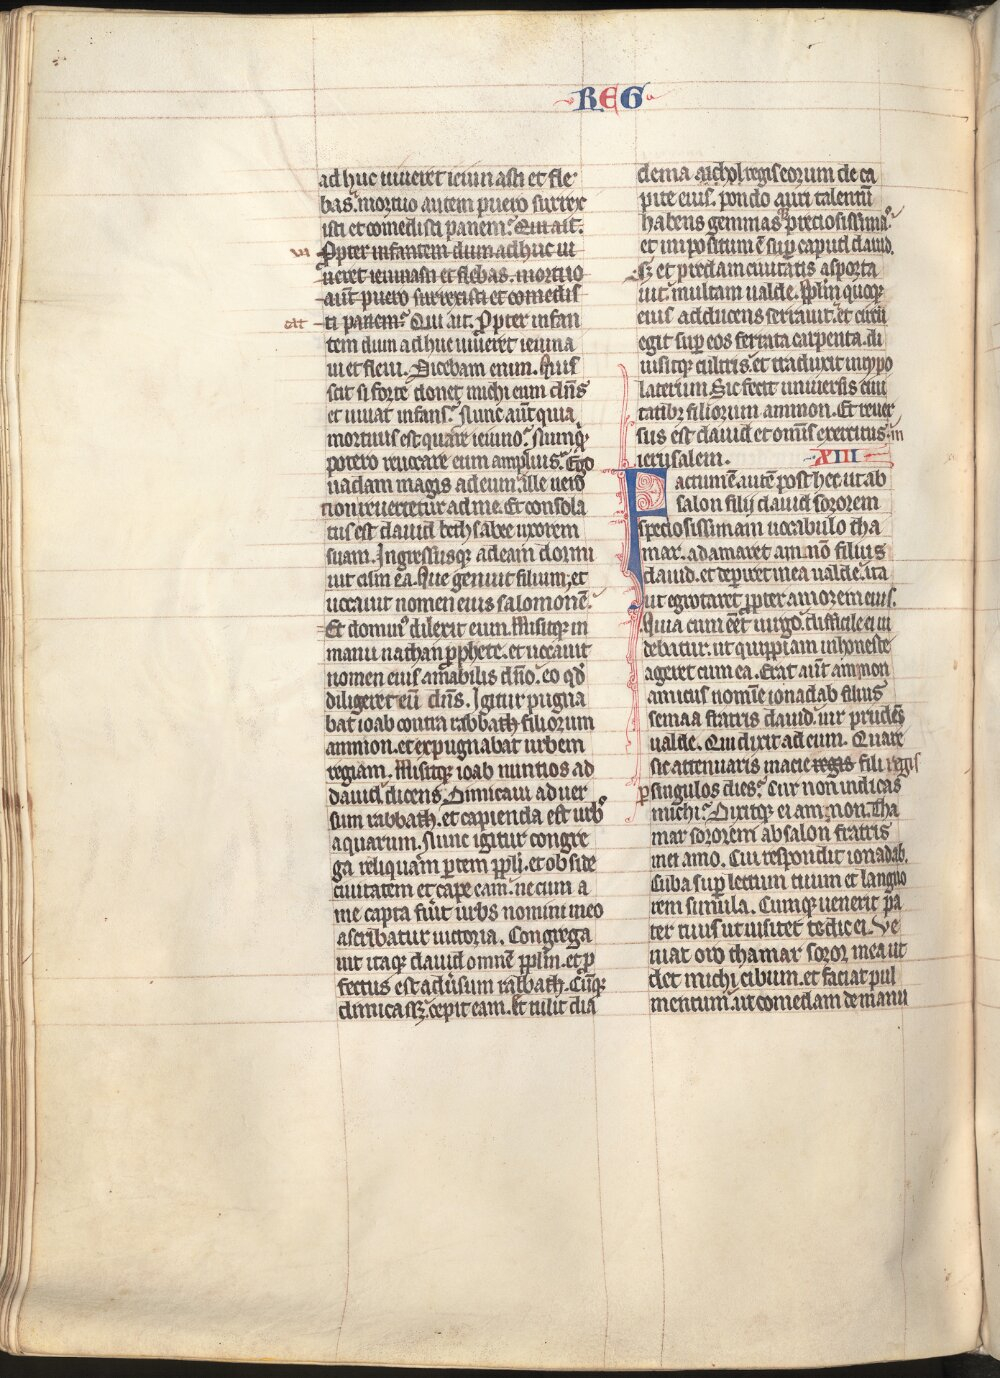 REG
adhuc uiueret ieiunasti et fle
bas. mortuo autem puero surrex
isti et comedisti panem? Qui ait.
va
Ppter infantem dum adhuc ui
ueret ieiunasti et flebas. mortuo
aut̄ puero surrexisti et comedis
cat
ti panem? Qui ait. Ppter infan
tem dum adhuc uiueret ieiuna
ui et fleui. Dicebam enim. Quis
scit si forte donet michi eum dn̄s
et uiuat infans? Nunc aut̄ quia
mortuus est quare ieiuno? Nunq̄
potero reuocare eum amplius? Ego
uadam magis ad eum. ille uero
non reuertetur ad me. Et consola
tus est dauid bethsabee uxorem
suam. Ingressusq; ad eam dormi
uit cum ea. Que genuit filium. et
uocauit nomen eius salomonē.
Et domin᷒ dilexit eum. Misitq; in
manu nathan ꝓphete. et uocauit
nomen eius amabilis dn̄o. eo qd̓
diligeret eū dn̄s. Igitur pugna
bat ioab contra rabbath filiorum
ammon. et expugnabat urbem
regiam. Misitq; ioab nuntios ad
dauid dicens. Dimicaui aduer
sum rabbath. et capienda est urbs
aquarum. Nunc igitur congre
ga reliquam ꝑtem ppl̄i. et obside
ciuitatem et cape eam. ne cum a
me capta fu̓it urbs nomini meo
ascribatur uictoria. Congrega
uit itaq; dauid omnē ppl̄m. et ꝓ
fectus est adu̓sum rabbath. Cūq;
dimicass; cepit eam. Et tulit dia
dema michol regis eorum de ca
pite eius. pondo auri talentū
habens gemmas preciosissimas.
et impositum ē suꝑ capud dauid.
Sz et predam ciuitatis asporta
uit multam ualde. Ppl̄m quoq;
eius adducens serrauit. et circū
egit suꝑ eos ferrata carpenta. di
uisitq; cultris. et traduxit in typo
laterum. Sic fecit uniuersis ciui
tatibz filiorum ammon. Et reuer
sus est dauid et omīs exercitus in
ierusalem. XIII
Factum ē autē post hec ut ab
salon filij dauid sororem
speciosissimam uocabulo tha
mar. adamaret amnō filius
dauid. et deperiret in ea ualde. ita
ut egrotaret ꝓpter amorem eius.
Quia cum eēt uirgo. difficile ei ui
debatur. ut quippiam inhoneste
ageret cum ea. Erat aut̄ ammon
amicus nomīe ionadab filius
semaa fratris dauid. uir prudēs
ualde. Qui dixit ad eum. Quare
sic attenuaris macie regis fili regis
ꝑ singulos dies? Cur non indicas
michi? Dixitq; ei amnon. Tha
mar sororem absalon fratris
mei amo. Cui respondit ionadab.
Cuba suꝑ lectum tuum et languo
rem simula. Cumq; uenerit pa
ter tuus ut uisitet te dic ei. Ve
niat oro thamar soror mea ut
det michi cibum. et faciat pul
mentum. ut comedam de manu